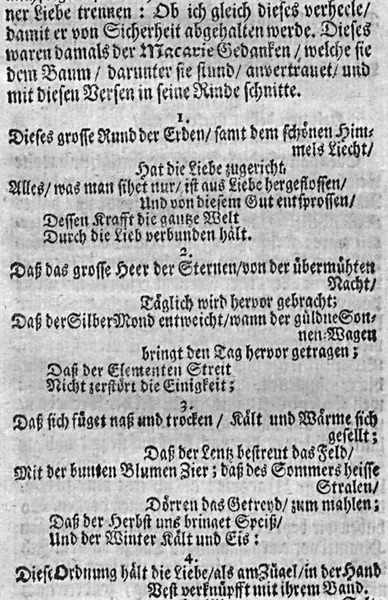 ner Liebe trennen: Ob ich gleich dieses verheele/
damit er von Sicherheit abgehalten werde. Dieses
waren damals der Macarie Gedanken/ welche sie
dem Baum/ darunter sie stund/ anvertrauet/ und
mit diesen Versen in seine Rinde schnitte.
1.
Dieses grosse Rund der Erden/ samt dem schönen Him-
mels Liecht/
Hat die Liebe zugericht.
Alles/ was man sihet nur/ ist aus Liebe hergeflossen/
Und von diesem Gut entsprossen/
Dessen Krafft die gantze Welt
Durch die Lieb verbunden hält.
2.
Daß das grosse Heer der Sternen/von der übermühten
Nacht/
Täglich wird hervor gebracht;
Daß der Silber Mond entweicht/wann der güldne Son-
nen-Wagen
bringt den Tag hervor getragen;
Daß der Elementen Streit
Nicht zerstört die Einigkeit;
3.
Daß sich füget naß und trocken/ Kält und Wärme sich
gesellt;
Daß der Lentz bestreut das Feld/
Mit der bunten Blumen Zier; daß des Sommers heisse
Stralen/
Dörren das Getreyd/ zum mahlen;
Daß der Herbst uns bringet Speiß/
Und der Winter Kält und Eis:
4.
Diese Ordnung hält die Liebe/als am Zügel/in der Hand
Vest verknüpfft mit ihrem Band.